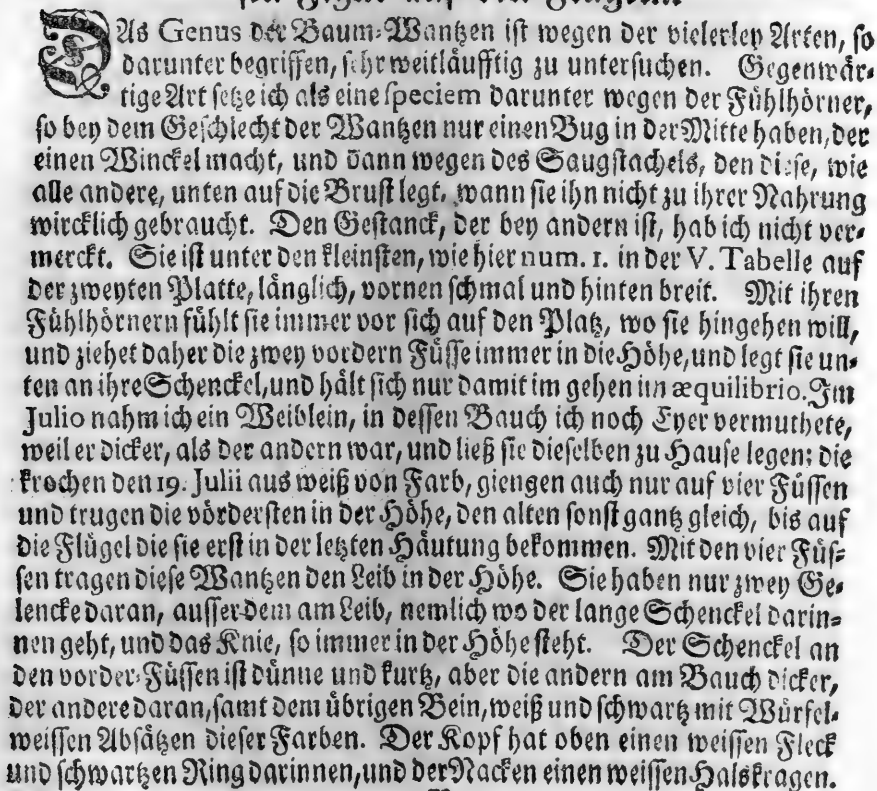 DAs Genus der Baum-Wantzen ist wegen der vielerley Arten, so
darunter begriffen, sehr weitläufftig zu untersuchen. Gegenwär-
tige Art setze ich als eine speciem darunter wegen der Fühlhörner,
so bey dem Geschlecht der Wantzen nur einen Bug in der Mitte haben, der
einen Winckel macht, und dann wegen des Saugstachels, den diese, wie
alle andere, unten auf die Brust legt, wann sie ihn nicht zu ihrer Nahrung
wircklich gebraucht. Den Gestanck, der bey andern ist, hab ich nicht ver-
merckt. Sie ist unter den kleinsten, wie hier num. 1. in der V. Tabelle auf
der zweyten Platte, länglich, vornen schmal und hinten breit. Mit ihren
Fühlhörnern fühlt sie immer vor sich auf den Platz, wo sie hingehen will,
und ziehet daher die zwey vordern Füsse immer in die Höhe, und legt sie un-
ten an ihre Schenckel, und hält sich nur damit im gehen inn æquilibrio. Im
Julio nahm ich ein Weiblein, in dessen Bauch ich noch Eyer vermuthete,
weil er dicker, als der andern war, und ließ sie dieselben zu Hause legen: die
krochen den 19. Julii aus weiß von Farb, giengen auch nur auf vier Füssen
und trugen die vördersten in der Höhe, den alten sonst gantz gleich, bis auf
die Flügel die sie erst in der letzten Häutung bekommen. Mit den vier Füs-
sen tragen diese Wantzen den Leib in der Höhe. Sie haben nur zwey Ge-
lencke daran, ausser dem am Leib, nemlich wo der lange Schenckel darin-
nen geht, und das Knie, so immer in der Höhe steht. Der Schenckel an
den vorder-Füssen ist dünne und kurtz, aber die andern am Bauch dicker,
der andere daran, samt dem übrigen Bein, weiß und schwartz mit Würfel-
weissen Absätzen dieser Farben. Der Kopf hat oben einen weissen Fleck
und schwartzen Ring darinnen, und der Nacken einen weissen Halskragen.